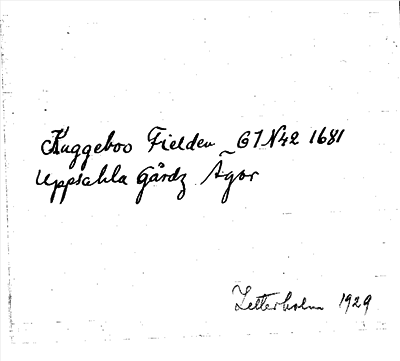 Kuggeboo Fielden GIN42 1681
Uppsahla Gårdz Ägor
Zetterholm 1929